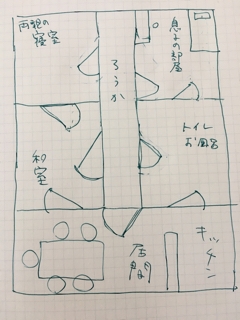 両親の
寝室
ろうか
息子の部屋
和室
トイレ
お風呂
居間
キッチン